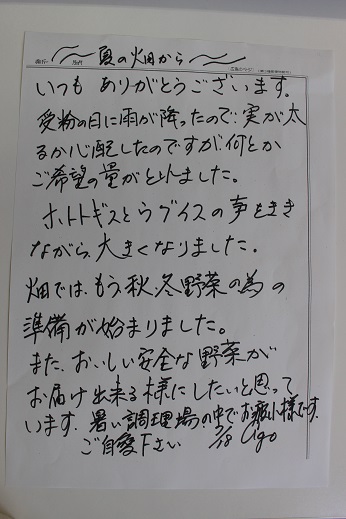 夏の畑から
いつも ありがとうございます。
受粉の日に雨が降ったので、実が太
るか心配したのですが、何とか
ご希望の量がとれました。
ホトトギスとウグイスの声をきき
ながら、大きくなりました。
畑では、もう秋、冬野菜の為の
準備が始まりました。
また、おいしい安全な野菜が
お届け出来る様にしたいと思って
います。暑い調理場の中でお疲れ様です。
ご自愛下さい 7/18